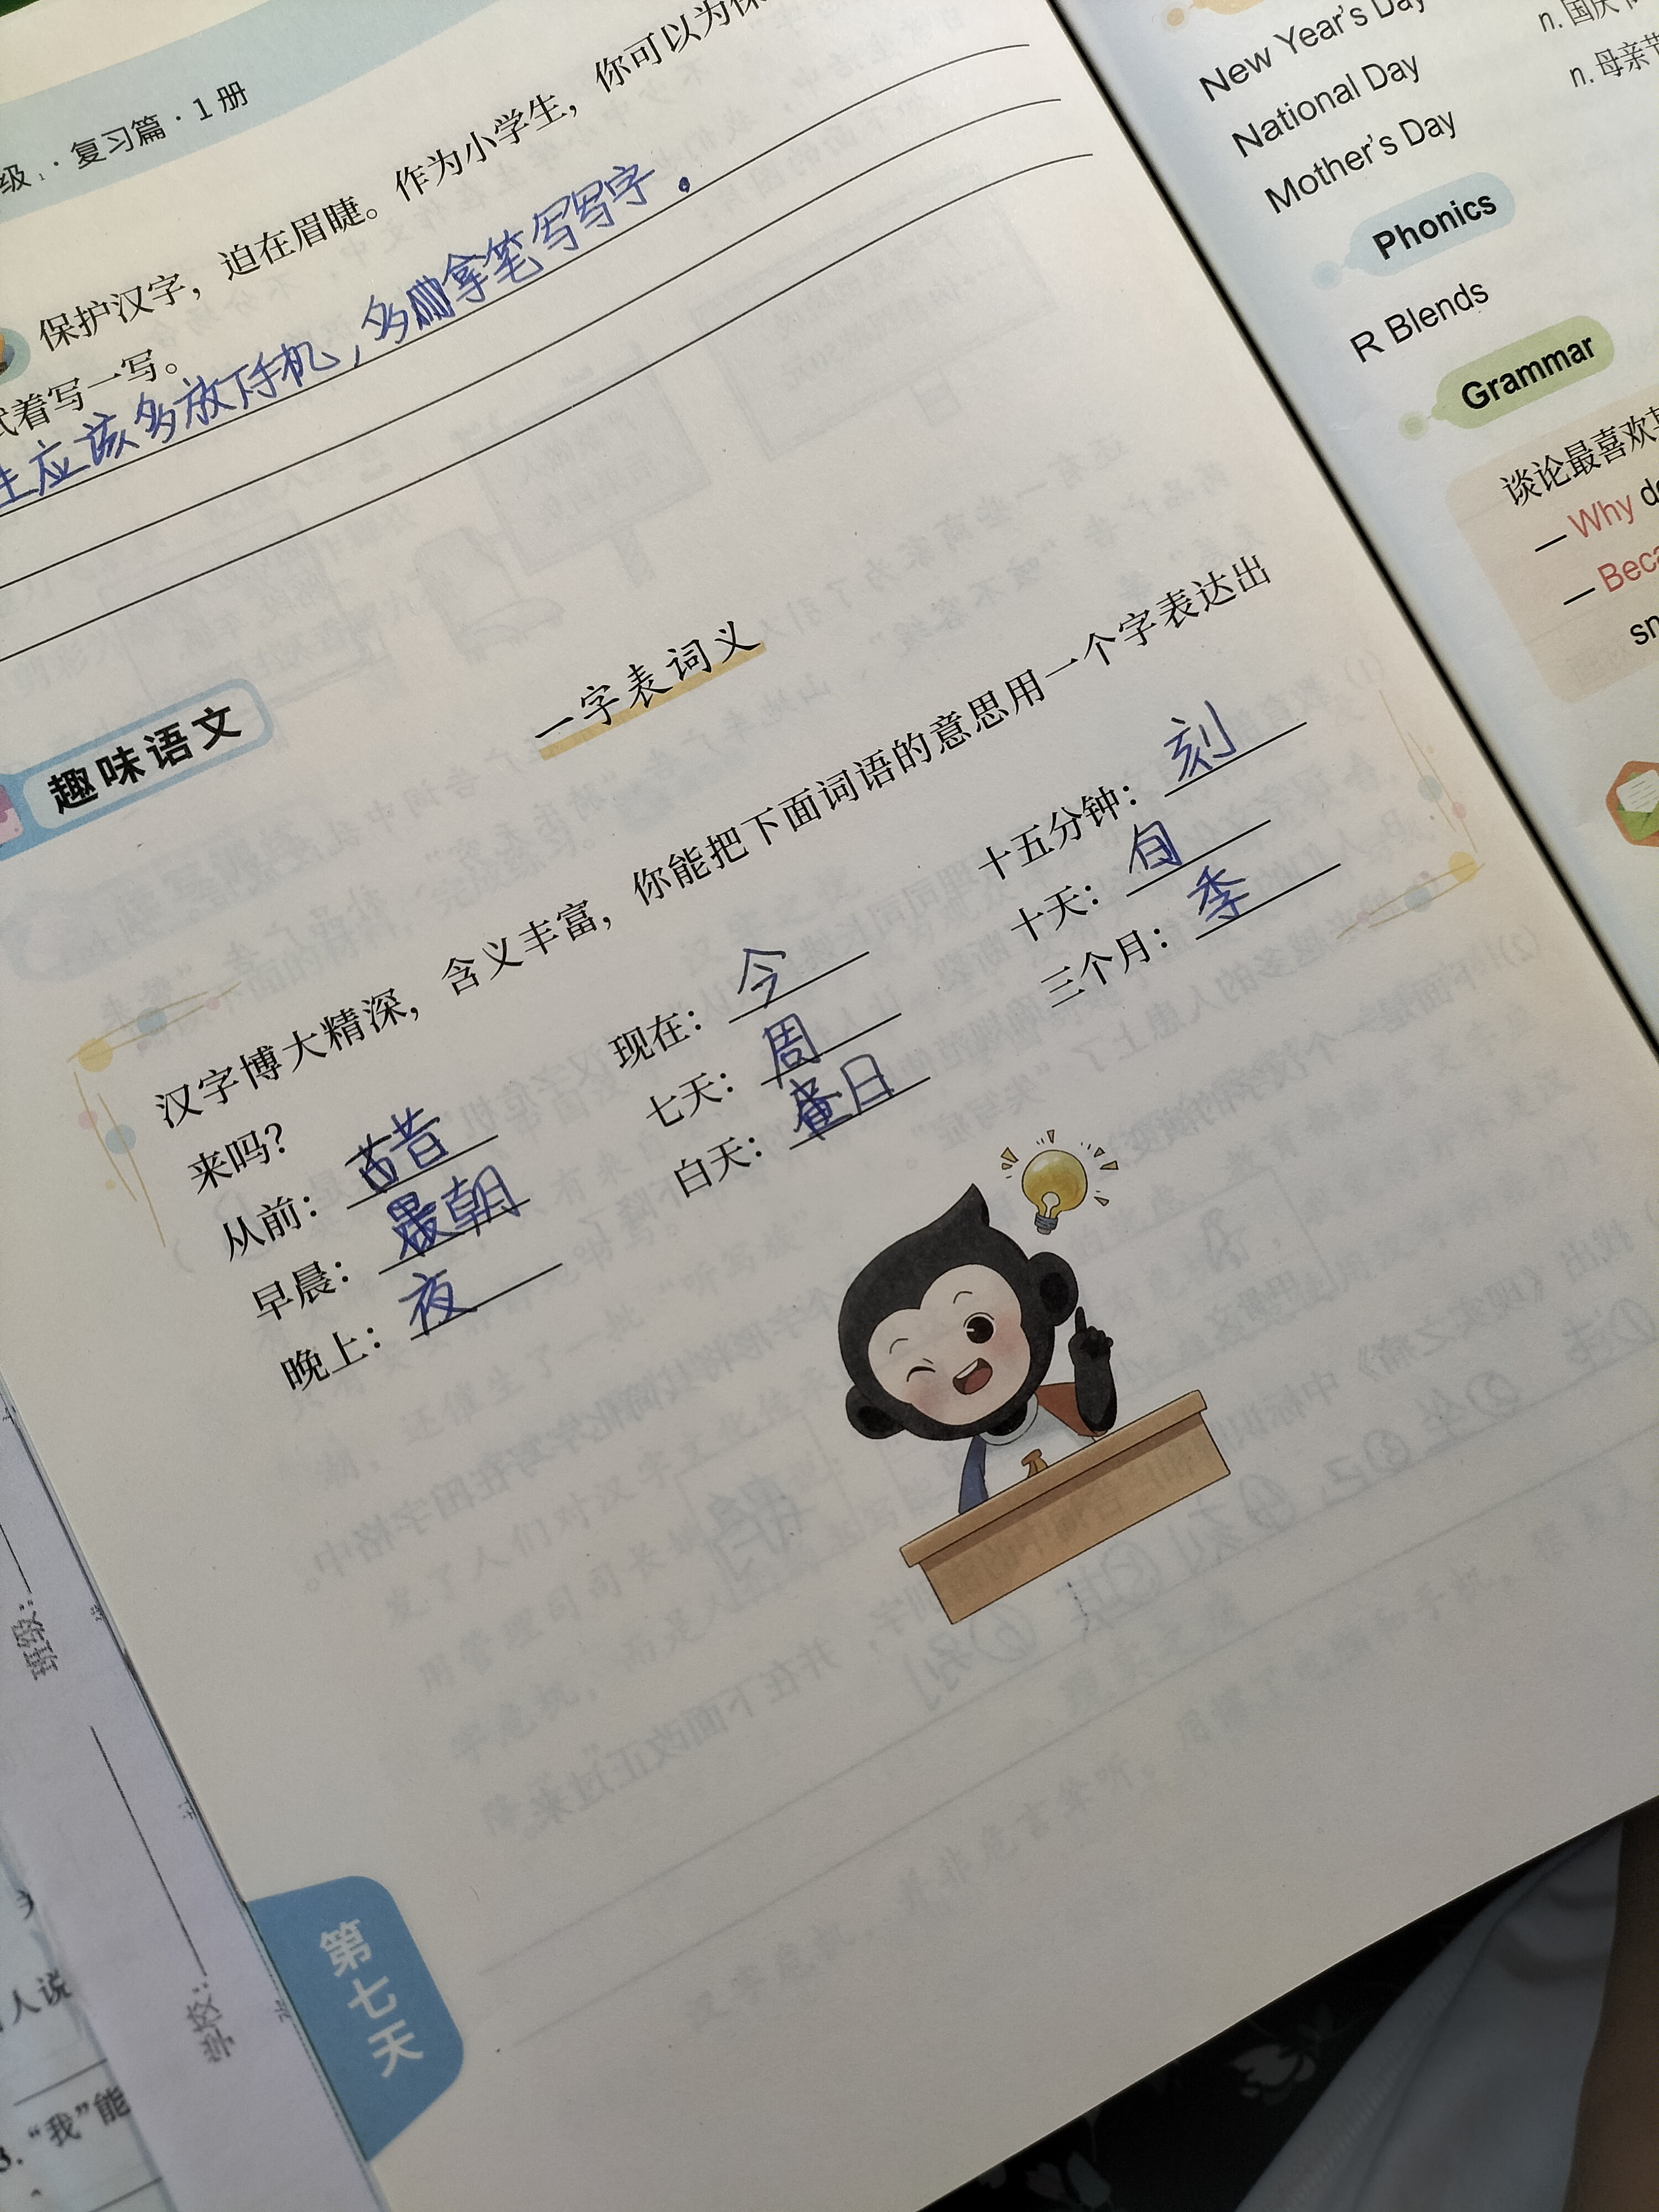 级·复习篇·1册
保护汉字，迫在眉睫。作为小学生，你可以为保
着写一写。
生应该多放下手机，多拿笔写写字。
趣味语文
一字表词义
汉字博大精深，含义丰富，你能把下面词语的意思用一个字表达出
来吗？
从前：昔
现在：今
十五分钟：刻
早晨：朝
七天：周
十天：旬
晚上：夜
白天：日
三个月：季
第七天
New Year's Day
National Day
Mother's Day
n. 国庆
n. 母亲节
Phonics
R Blends
Grammar
谈论最喜欢
— Why
— Beca
sn
班级：
学校：
人说
3. “我”能